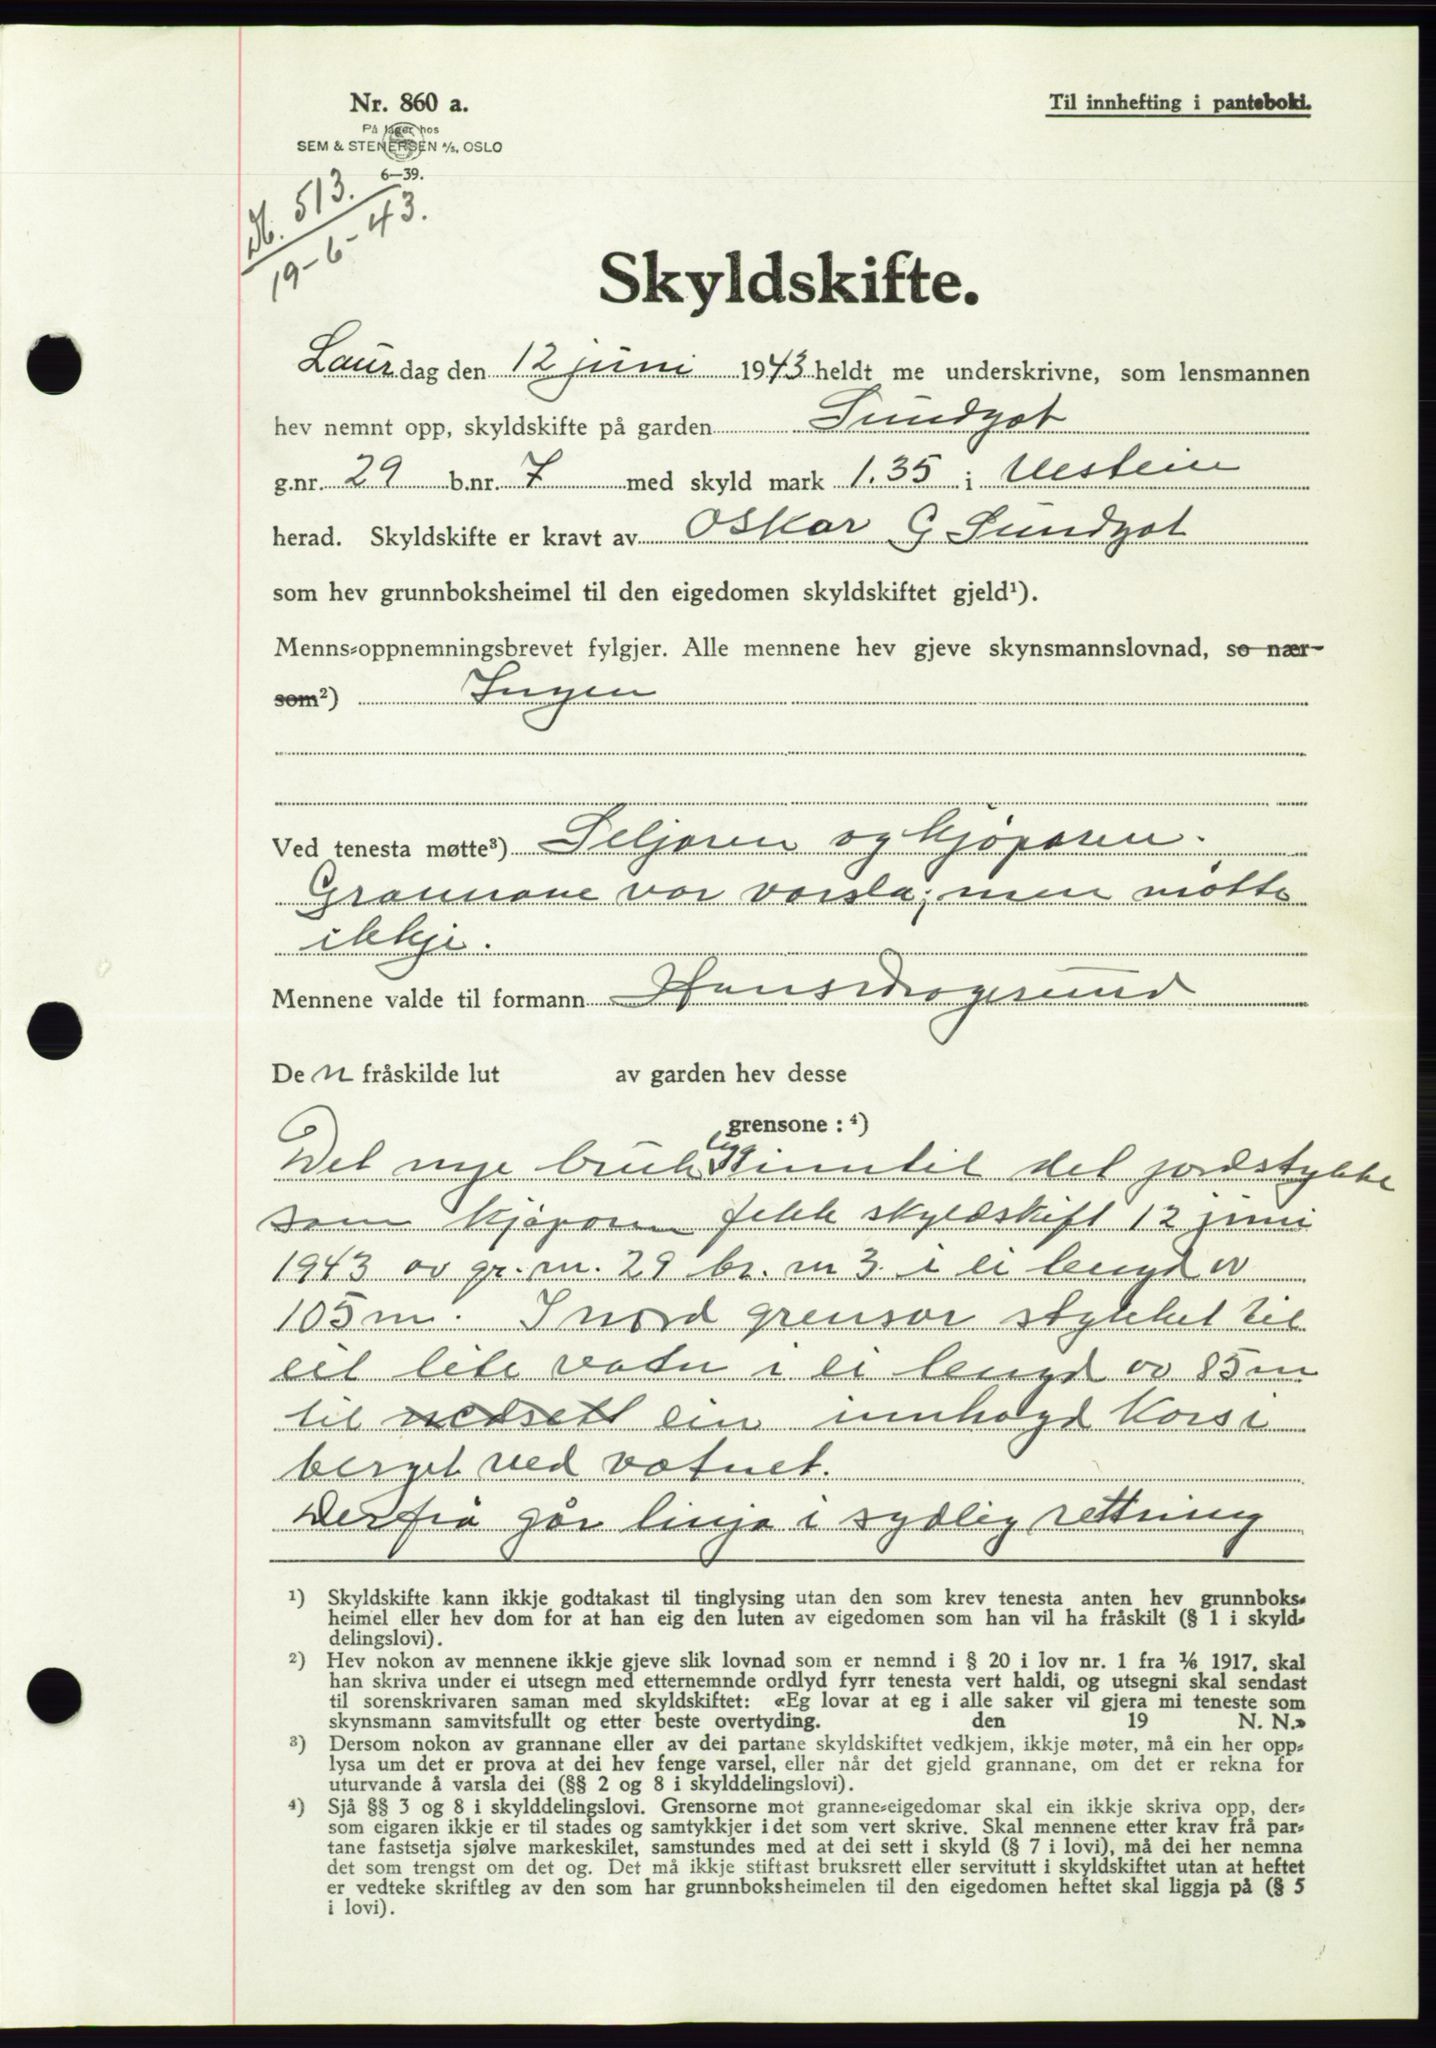 Nr. 860 a.
Til innhefting i panteboki.
På lager hos
SEM & STENERSEN A/S, OSLO
6—39.
Nr. 513.
19-6-43.
Skyldskifte.
Laurdag den 12 juni 1943 heldt me underskrivne, som lensmannen
hev nemnt opp, skyldskifte på garden Sundgot
g.nr. 29 b.nr. 7 med skyld mark 1.35 i Ulstein
herad. Skyldskifte er kravt av Oskar G Sundgot
som hev grunnboksheimel til den eigedomen skyldskiftet gjeld¹).
Menns-oppnemningsbrevet fylgjer. Alle mennene hev gjeve skynsmannslovnad, so nær-
som²) Ingen
Ved tenesta møtte³) Seljaren og kjøparen.
Grannane var varsla; men møtte
ikkje.
Mennene valde til formann Hans Dragesund
De n fråskilde lut av garden hev desse
grensone : ⁴)
Det nye bruk ligg inntil det jordstykke
som kjøparen fekk skyldskift 12 juni
1943 av gr. nr. 29 br. nr 3 i ei lengd av
105 m. I nord grensar stykket til
eit lite vatn i ei lengd av 85 m
til nedsett ein innhogd kors i
berget ved vatnet.
Derfrå går linja i sydlig rettning
¹) Skyldskifte kann ikkje godtakast til tinglysing utan den som krev tenesta anten hev grunnboks-
heimel eller hev dom for at han eig den luten av eigedomen som han vil ha fråskilt (§ 1 i skyld-
delingslovi).
²) Hev nokon av mennene ikkje gjeve slik lovnad som er nemnd i § 20 i lov nr. 1 fra ¹/₆ 1917, skal
han skriva under ei utsegn med etternemnde ordlyd fyrr tenesta vert haldi, og utsegni skal sendast
til sorenskrivaren saman med skyldskiftet: «Eg lovar at eg i alle saker vil gjera mi teneste som
skynsmann samvitsfullt og etter beste overtyding. den 19 N. N.»
³) Dersom nokon av grannane eller av dei partane skyldskiftet vedkjem, ikkje møter, må ein her opp-
lysa um det er prova at dei hev fenge varsel, eller når det gjeld grannane, om det er rekna for
uturvande å varsla dei (§§ 2 og 8 i skylddelingslovi).
⁴) Sjå §§ 3 og 8 i skylddelingslovi. Grensorne mot granne-eigedomar skal ein ikkje skriva opp, der-
som eigaren ikkje er til stades og samtykkjer i det som vert skrive. Skal mennene etter krav frå par-
tane fastsetja sjølve markeskilet, samstundes med at dei sett i skyld (§ 7 i lovi), må dei her nemna
det som trengst om det og. Det må ikkje stiftast bruksrett eller servitutt i skyldskiftet utan at heftet
er vedteke skriftleg av den som har grunnboksheimelen til den eigedomen heftet skal liggja på (§ 5
i lovi).